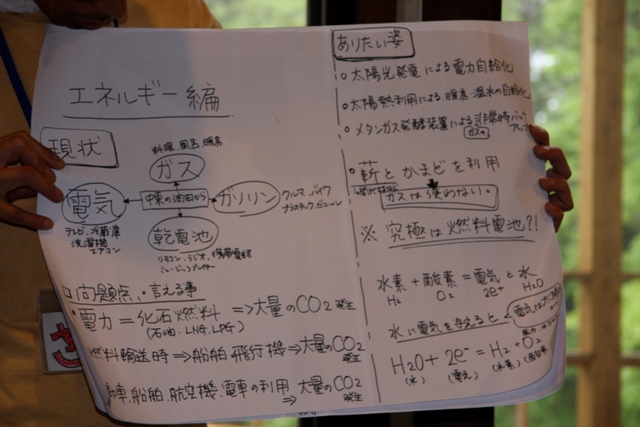 エネルギー編
現状
料理 風呂 暖房
ガス
電気
中東の油田から
ガソリン
クルマ バイク
プラスチック、ビニール
テレビ、冷蔵庫
洗濯機
エアコン
乾電池
リモコン、ラジオ、携帯電話
ミュージックプレイヤー
問題点、言える事
・電力=化石燃料⇒大量のCO2発生
(石油・LNG、LPG)
燃料輸送時⇒船舶 飛行機⇒大量のCO2発生
車、船舶、航空機、電車の利用
⇒大量のCO2発生
ありたい姿
○太陽光発電による電力自給化
○太陽熱利用による、暖房・温水の自給化
○メタンガス発酵装置による非常時バックアップ
ガスの
○薪とかまどを利用
ガスは使わない。
※究極は燃料電池?!
水素+酸素=電気と水
H2 O2 2e- H2O
水に電気を与えると
H2O+2e-=H2+O2
(水) (電気) (水素) (酸素)